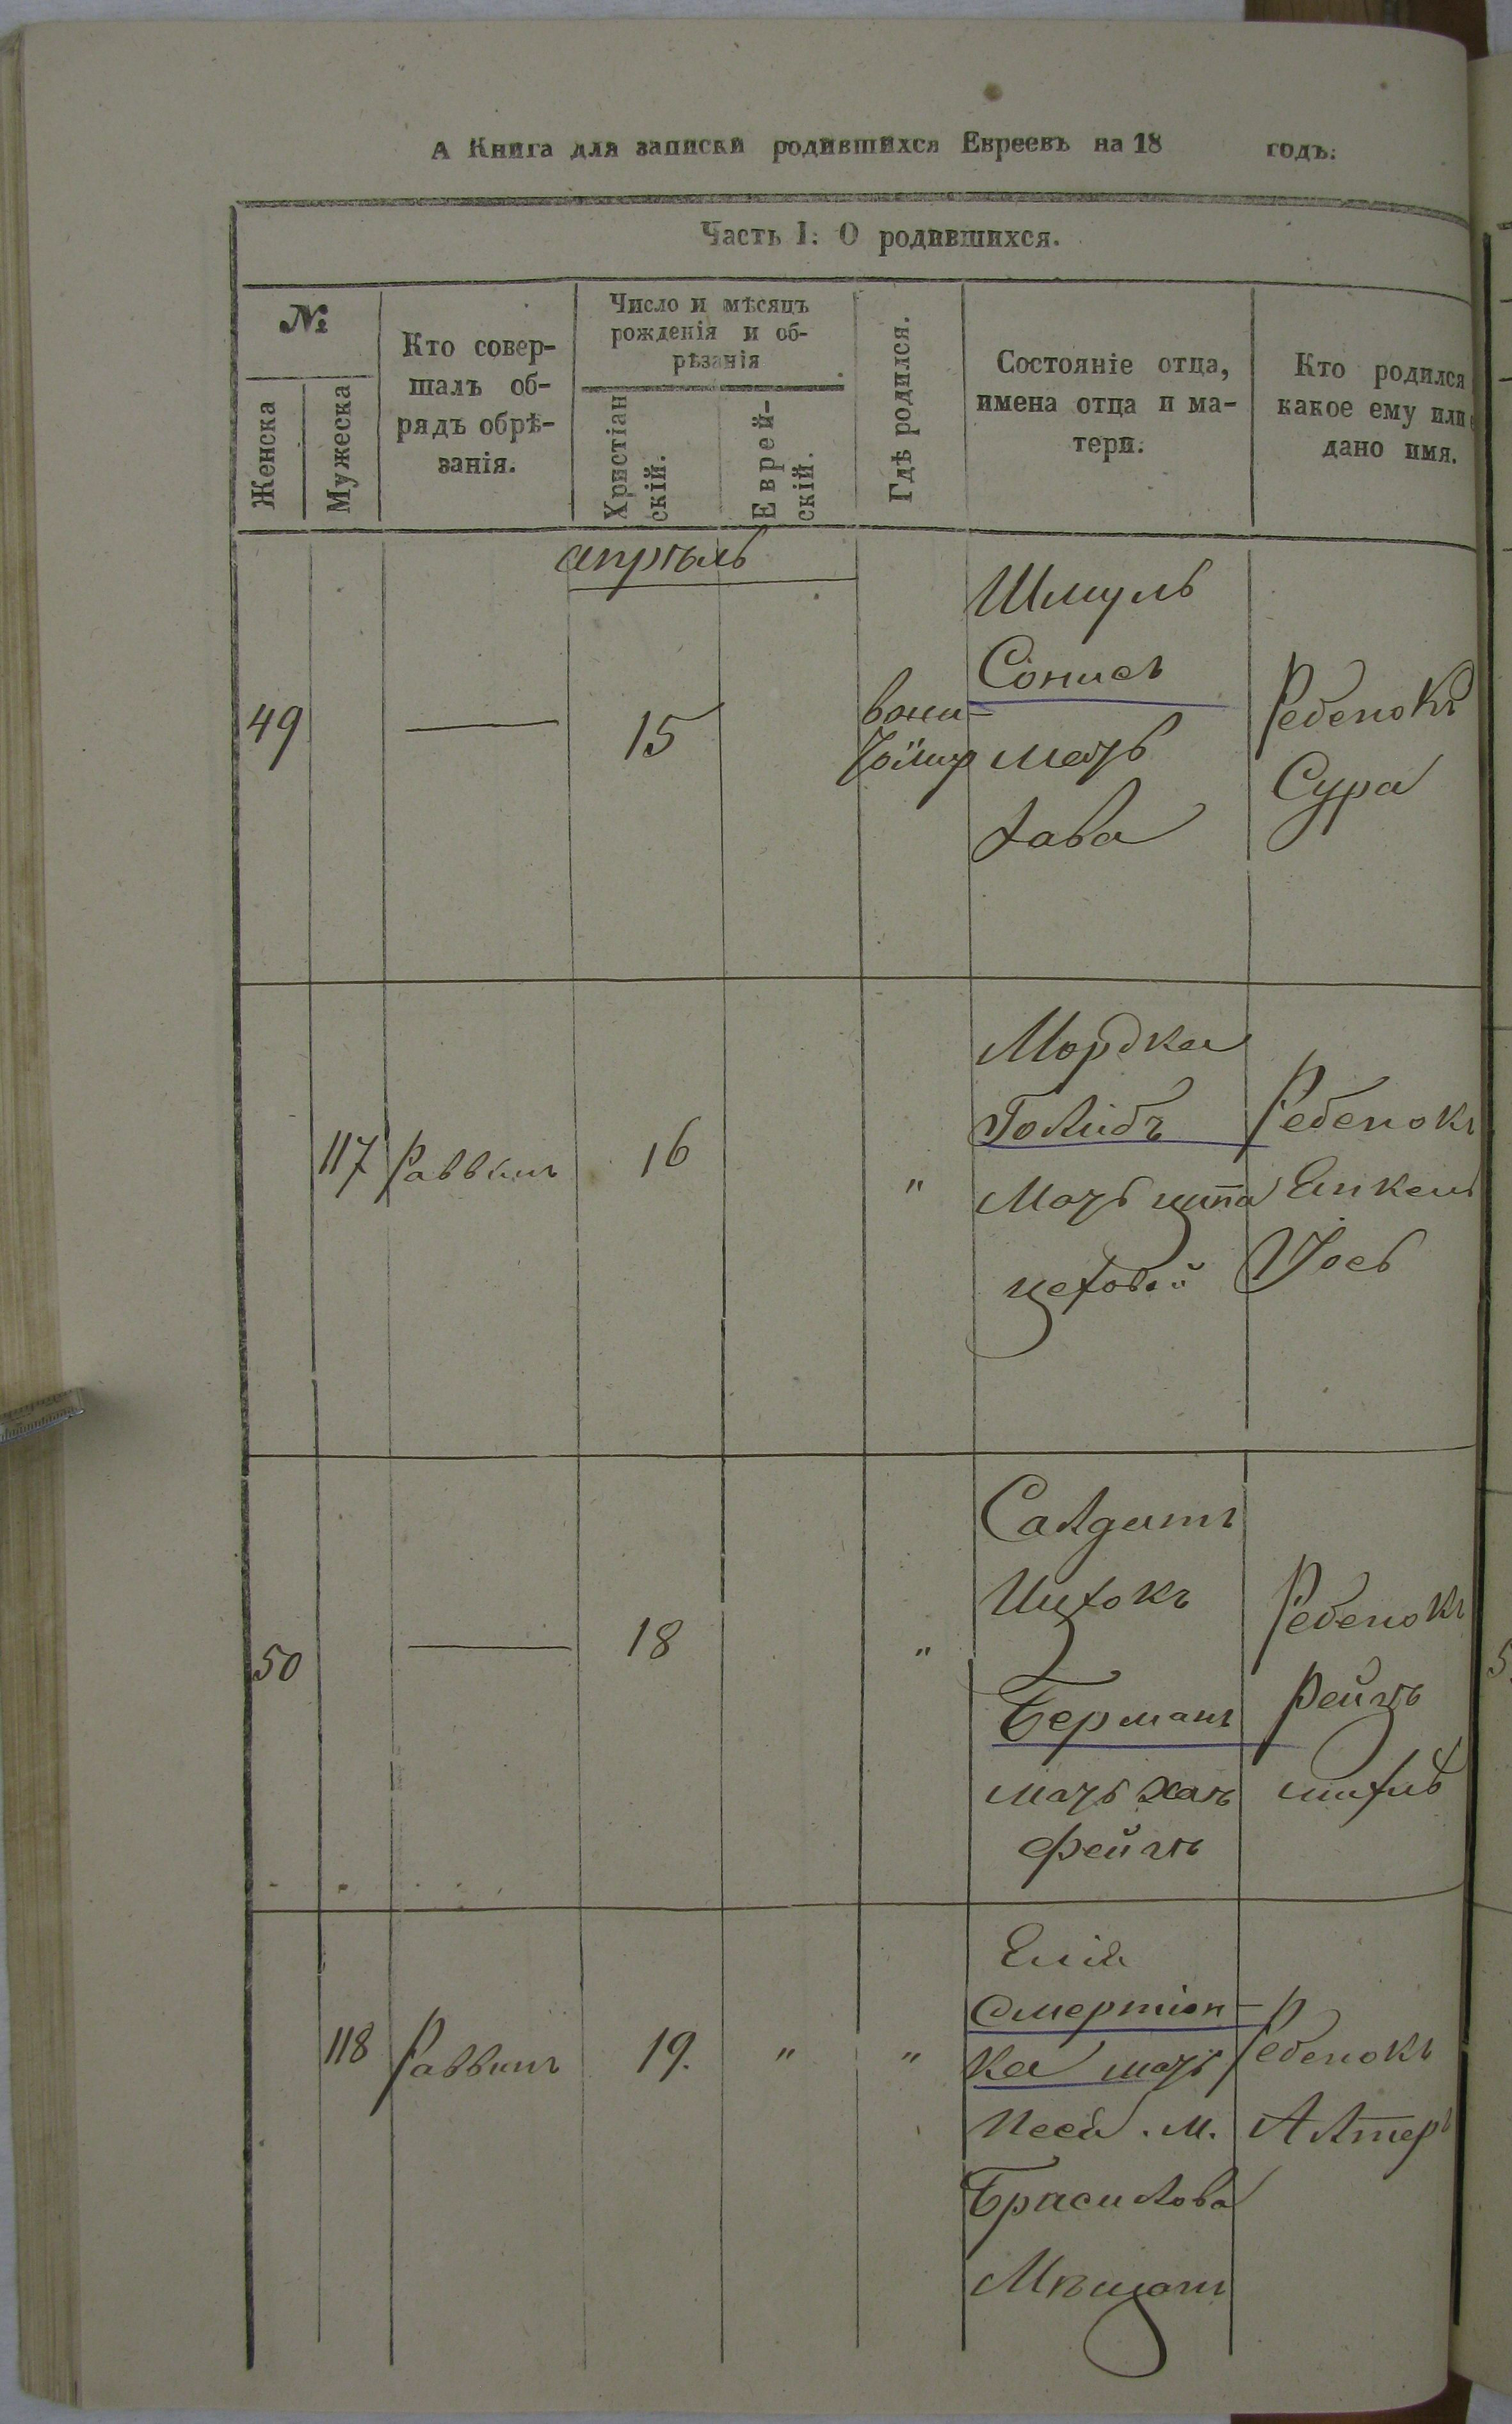 А Книга для записки родившихся Евреевъ на 18 годъ.
Часть I. О родившихся.
№
Женска
Мужеска
Кто совер-
шалъ об-
рядъ обрѣ-
занія.
Число и мѣсяцъ
рожденія и об-
рѣзанія
Христіан
скій.
Еврей-
скій.
Гдѣ родился.
Состояніе отца,
имена отца и ма-
тери.
Кто родился
какое ему или
дано имя.
апрѣль
49
15
Шмуль
мать
Хава
Ребенокъ
Сура
117
Раввинъ
16
"
Мордка
Голидъ
Мать ципа
цеховой
Ребенокъ
Янкель
Іось
50
18
"
Салдатъ
Ицхокъ
Берманъ
мать
Фейгъ
Ребенокъ
118
Раввинъ
19.
"
"
Елія
Смертін-
ка мать
Песя. м.
Мѣщанъ
Ребенокъ
Алтеръ